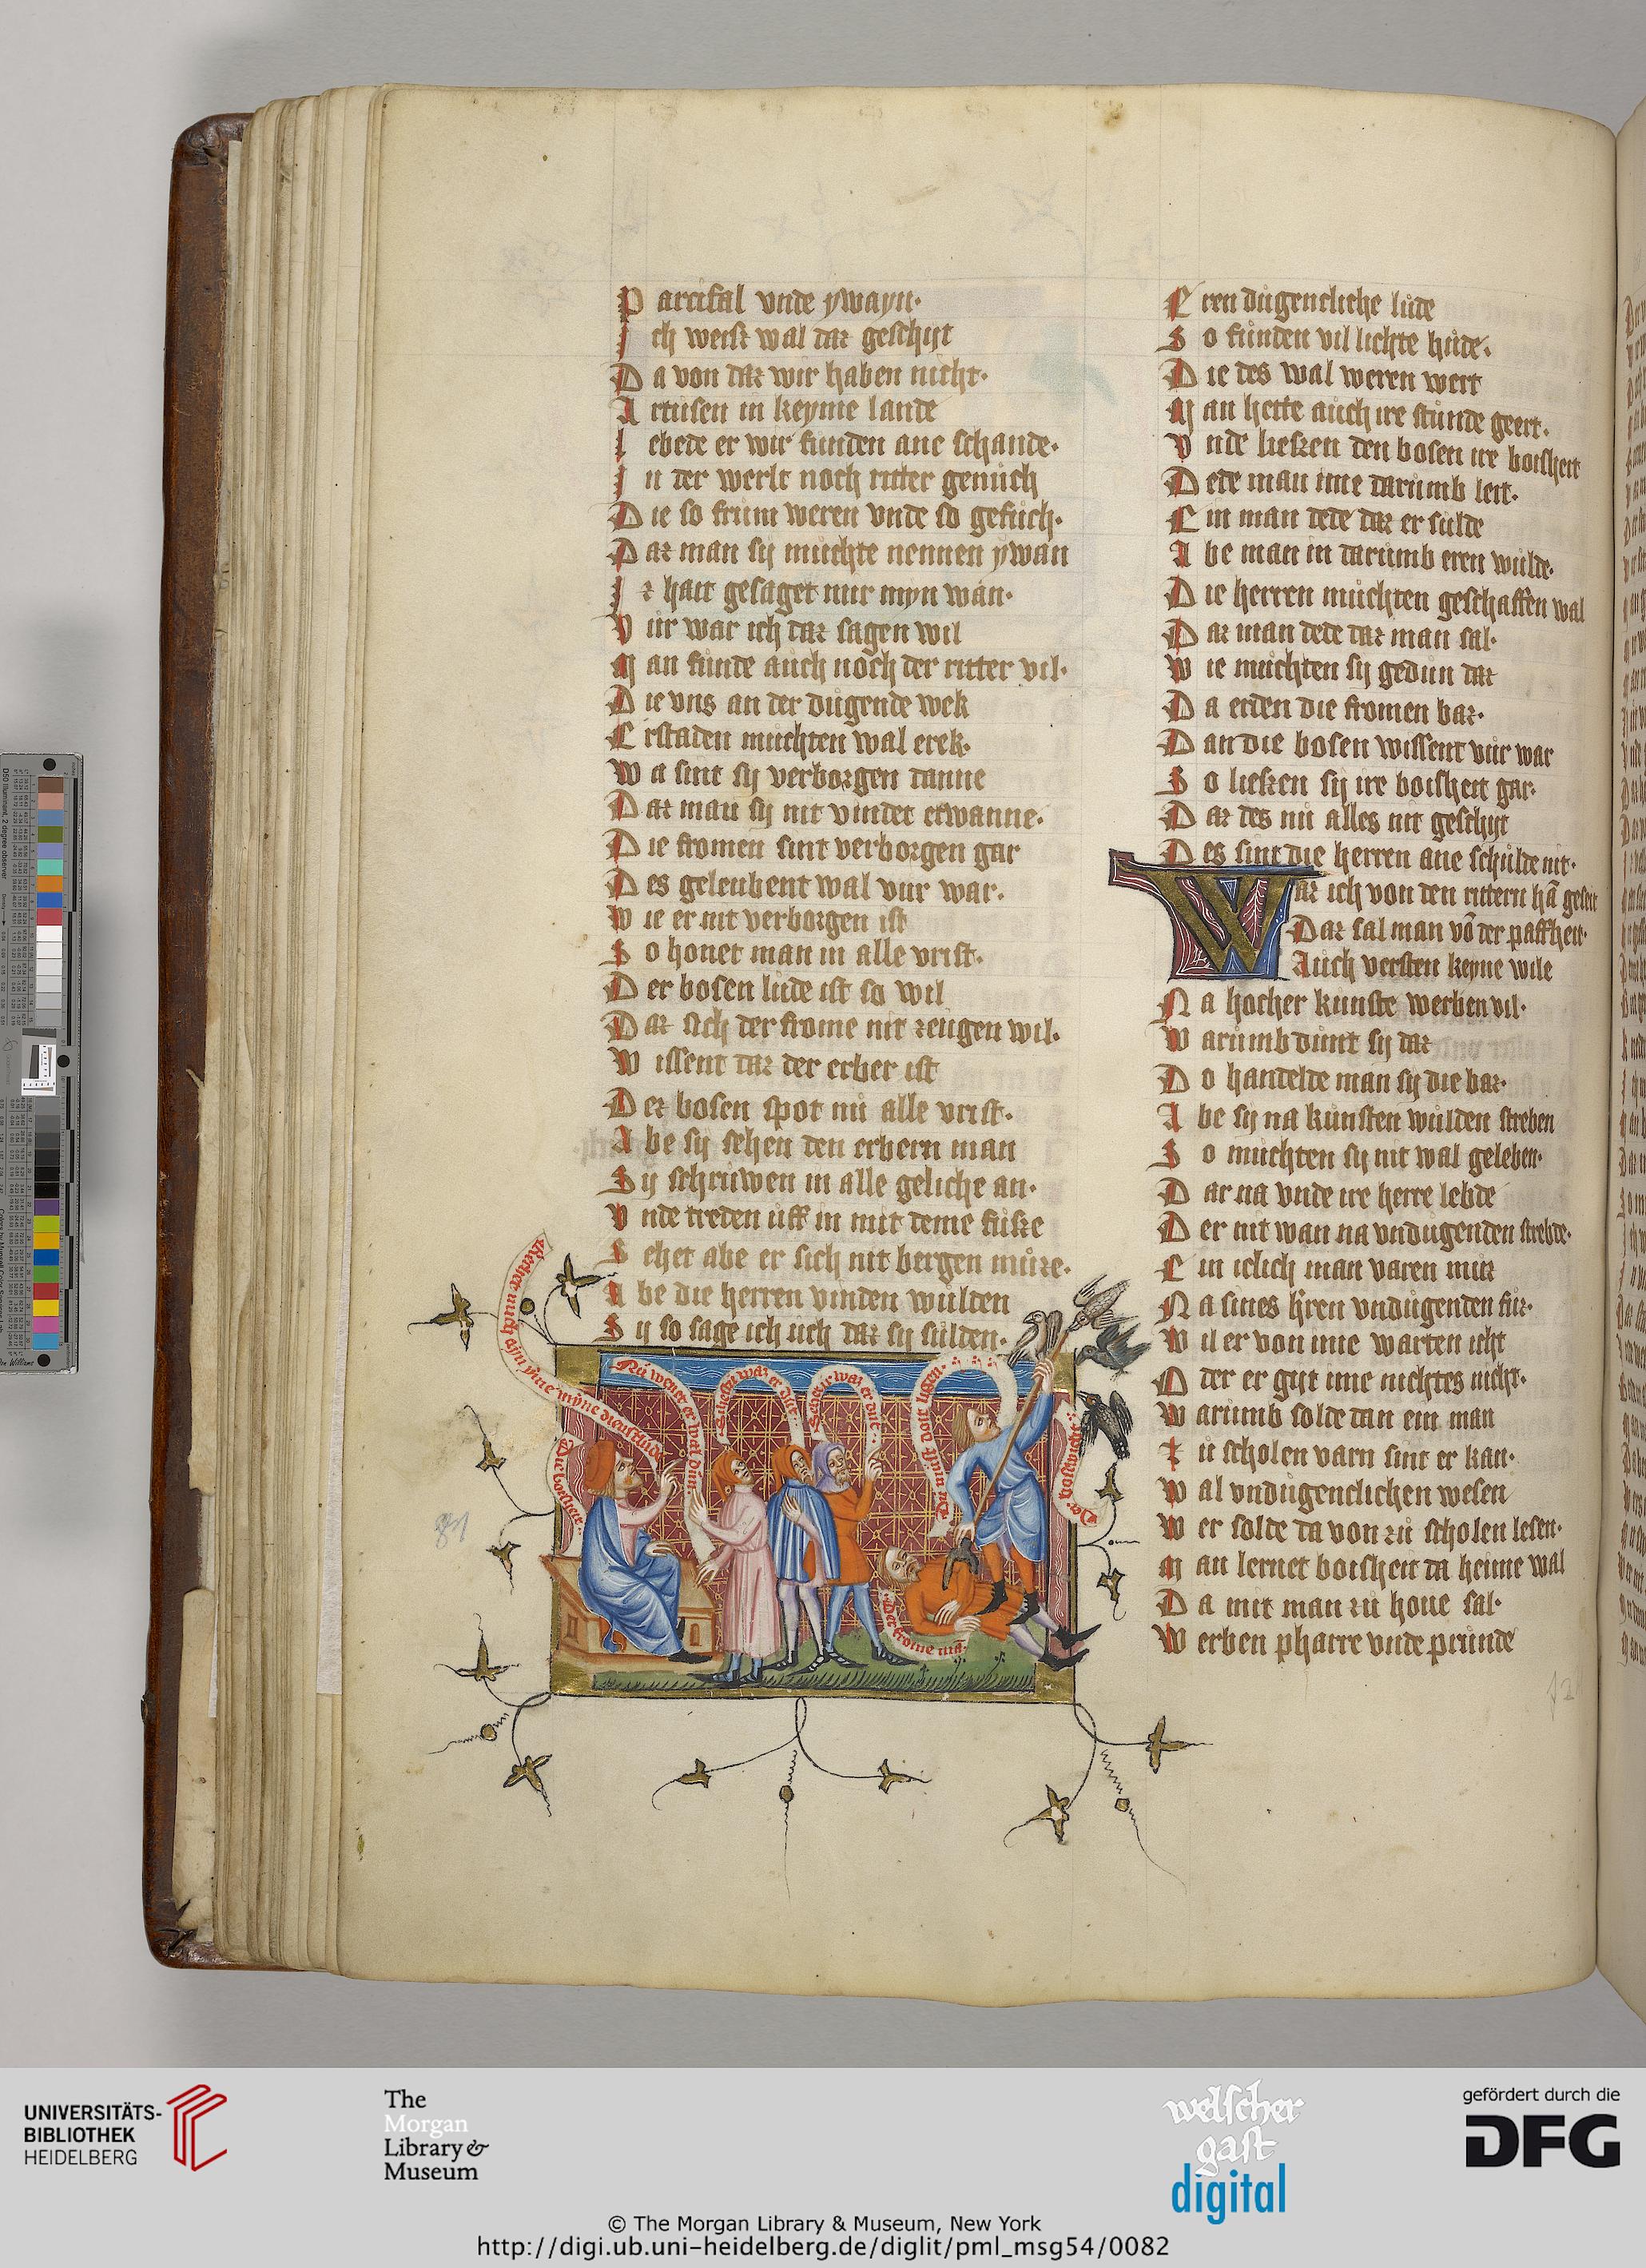 Parcifal vnde ywayn·
Ich weist wal daz geschyt
Da von daz wir haben nicht·
Artusen in keyme lande
lebete er wir funden ane schande·
In der werlt noch ritter genuch
Die so frum weren vnde so gefuch·
Daz man sy muchte nennen ywan
Iz hait gesaget mir myn wan·
Vur war ich daz sagen wil
Man funde auch noch der ritter vil·
Die vns an der dugende wek
Erstaden muchten wal erek·
Wa sint sy verborgen danne
Daz man sy nit vindet etwanne·
Die fromen sint verborgen gar
Des geleubent wal vur war·
Wie er nit verborgen ist
So honet man in alle vrist·
Der bosen lude ist so wil
Daz sich der frome nit zeugen wil·
Wissent daz der erber ist
Der bosen spot nu alle vrist·
Abe sy sehen den erbern man
Sy schruwen in alle geliche an·
Vnde treden uff in mit deme fuße
Sehet abe er sich nit bergen muze·
Abe die herren vinden wulden
Sy so sage ich uch daz sy sulden·
Eren dugentliche lude
So funden vil lichte hude·
Die des wal weren wert
Man hette auch ire stunde geert·
Vnde ließen den bosen ire bosheit
Dete man ime darumb leit·
Ein man dede daz er sulde
Abe man in darumb eren wulde·
Die herren muchten geschaffen wal
Daz man dede daz man sal·
Wie muchten sy gedun daz
Da erden die fromen baz·
Dan die bosen wissent vur war
So ließen sy ire bosheit gar·
Daz des nu alles nit geschyt
Des sint die herren ane schulde nit·
Waz ich von den rittern hā geseit
Daz sal man vō der paffheit·
Auch versten keyne wile
Na hocher kunste werben vil·
Warumb dunt sy daz
Do handelde man sy die baz·
Abe sy na kunsten wulden streben
So muchten sy nit wal geleben·
Dar na vnde ire herre lebde
Der nit wan na vndugenden strebde·
Ein iclich man varen muz
Na sines h'ren vndugenden fuz·
Wil er von ime warten icht
Oder er gyt ime nichtes nicht·
Warumb solde dan ein man
Zu scholen varn sint er kan·
Wal vndugentlichen wesen
Wer solde da von zu scholen lesen·
Man lernet bosheit da heime wal
Da mit man zu houe sal·
Werben pharre vnde prunde
Der frome mā·
Der bosewicht
81
UNIVERSITÄTS-
BIBLIOTHEK
HEIDELBERG
The
Morgan
Library &
Museum
welscher
gast
digital
gefördert durch die
DFG
© The Morgan Library & Museum, New York
http://digi.ub.uni-heidelberg.de/diglit/pml_msg54/0082